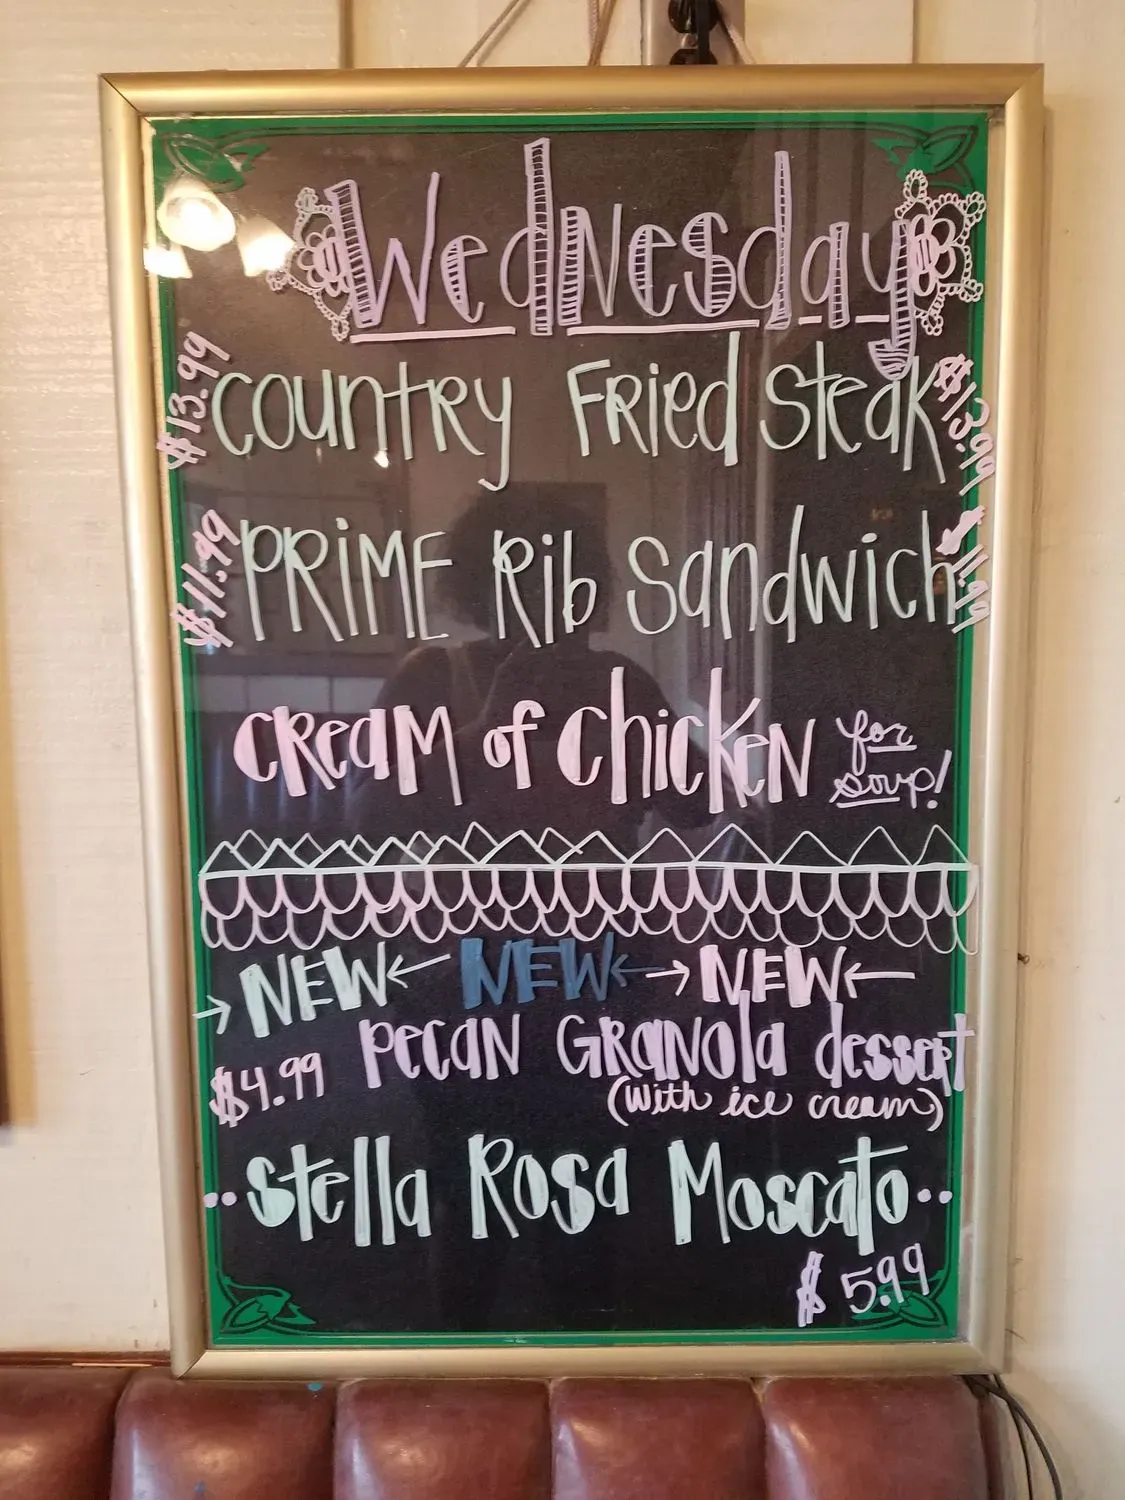 Wednesday
$13.99 Country Fried Steak $13.99
$11.99 PRIME Rib Sandwich $11.99
CReaM of ChicKeN for
soup!
NEW NEW NEW
PecaN GRaNola dessert
$4.99 (with ice cream)
Stella Rosa Moscato
$5.99